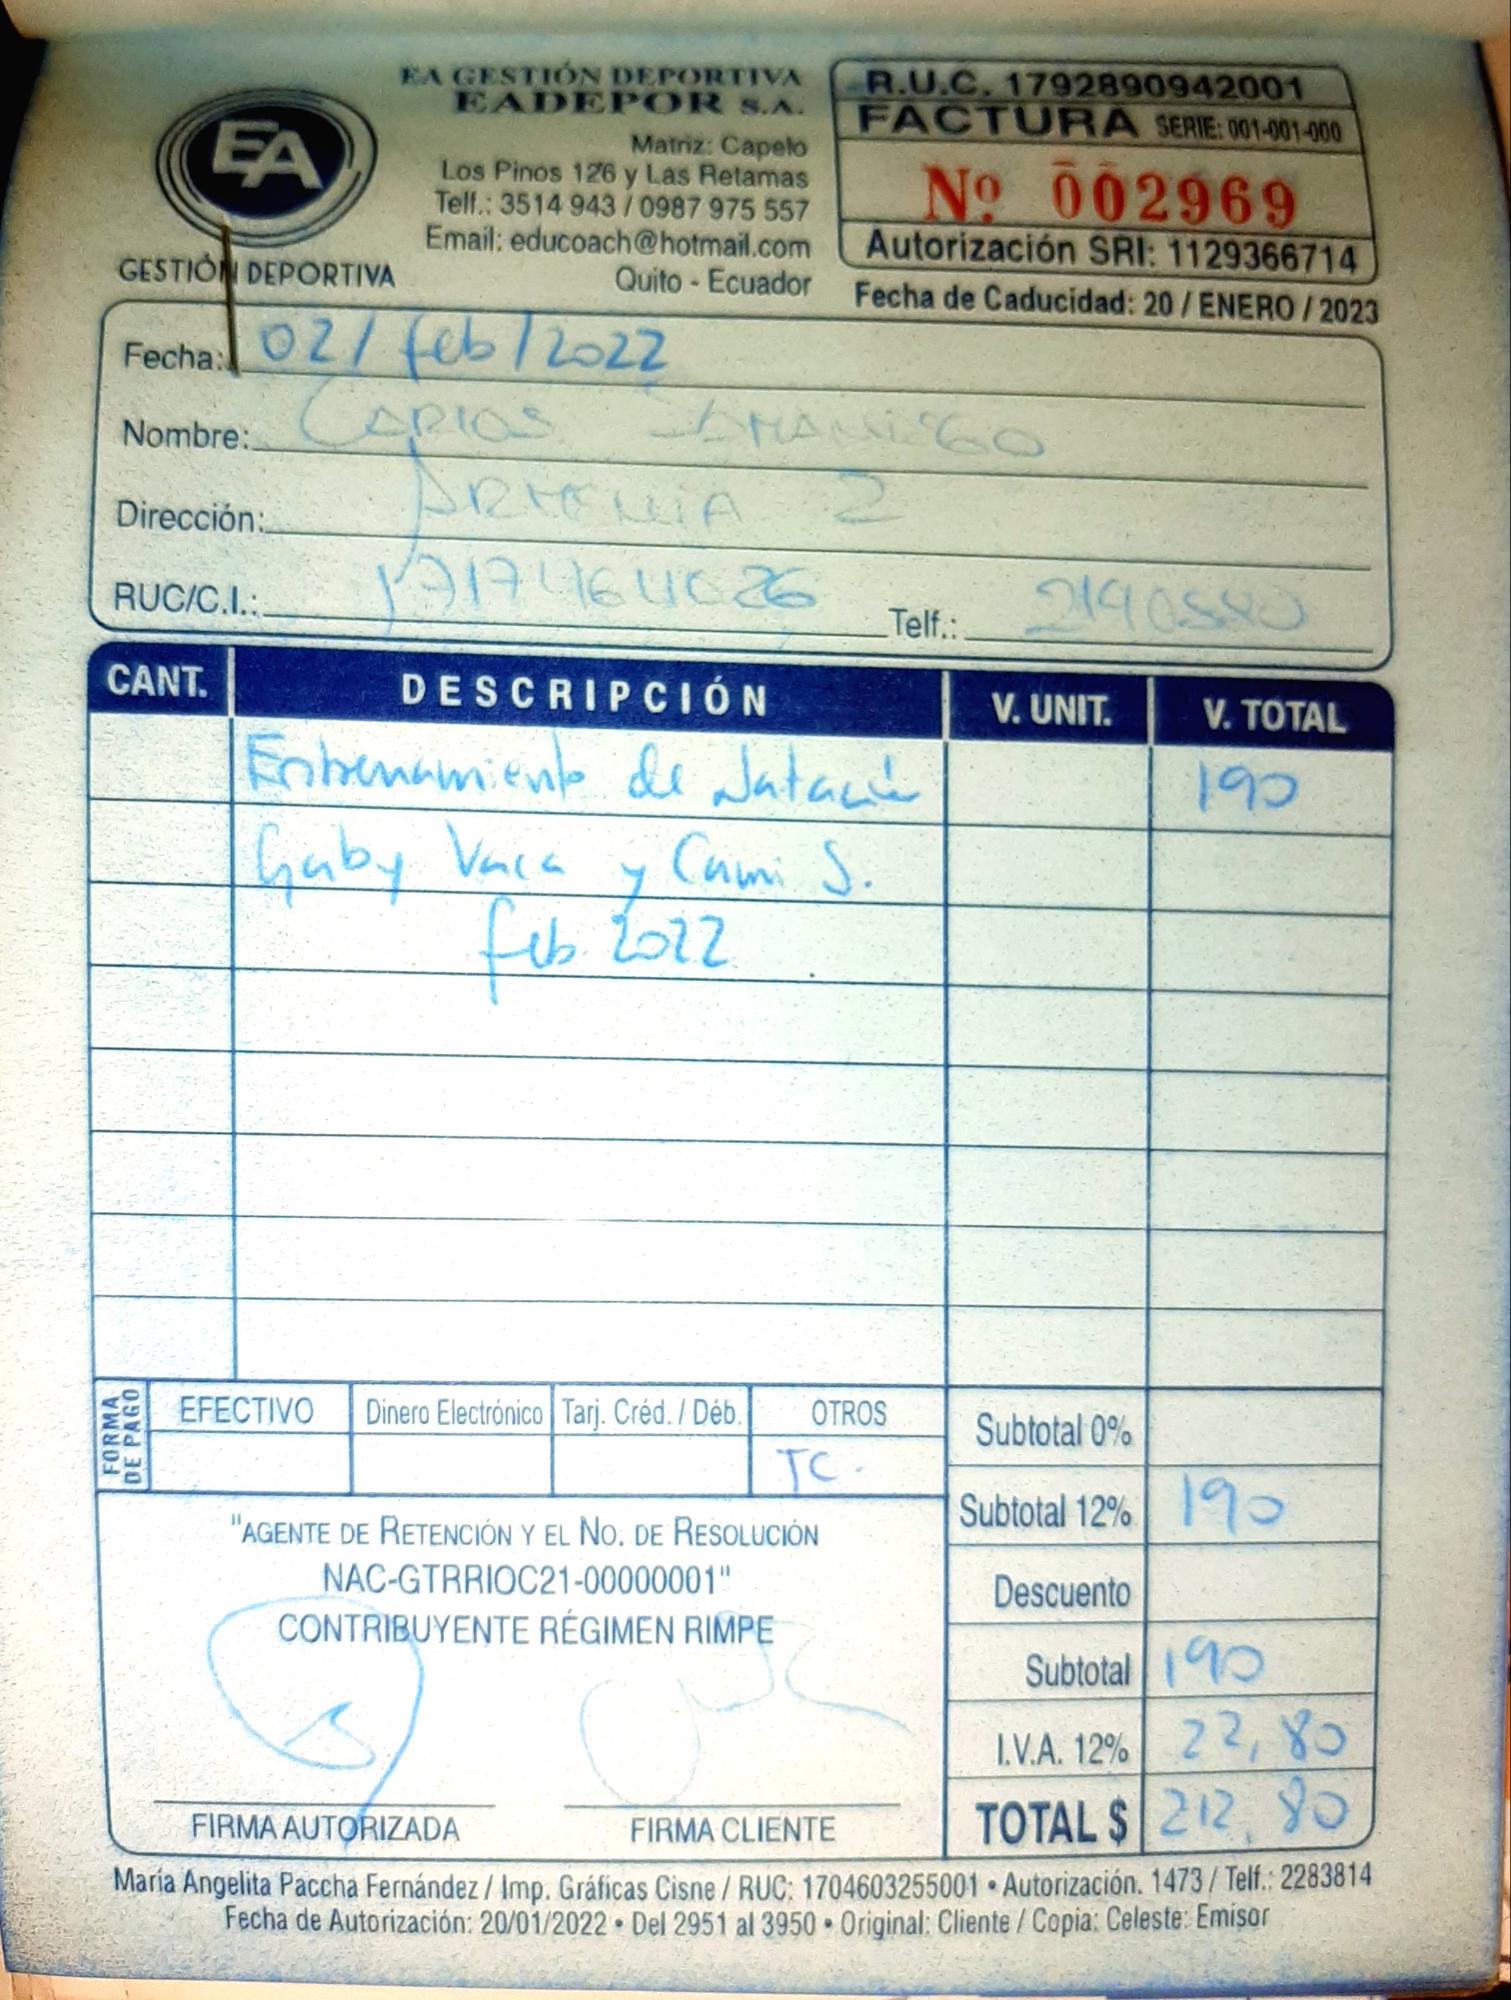 EA
GESTIÓN DEPORTIVA
EA GESTIÓN DEPORTIVA
EADEPOR S.A.
Matriz: Capelo
Los Pinos 126 y Las Retamas
Telf.: 3514 943 / 0987 975 557
Email: educoach@hotmail.com
Quito - Ecuador
R.U.C. 1792890942001
FACTURA SERIE: 001-001-000
Nº 002969
Autorización SRI: 1129366714
Fecha de Caducidad: 20 / ENERO / 2023
Fecha: 02/feb/2022
Nombre: CARLOS SAMANIEGO
Dirección: ARMENIA 2
RUC/C.I.: Telf.:
CANT. DESCRIPCIÓN V. UNIT. V. TOTAL
Entrenamiento de Natación 190
Gaby Vaca y Cami S.
feb 2022
FORMA DE PAGO
EFECTIVO Dinero Electrónico Tarj. Créd. / Déb. OTROS
TC.
Subtotal 0%
Subtotal 12% 190
Descuento
Subtotal 190
I.V.A. 12% 22,80
TOTAL $ 212,80
"AGENTE DE RETENCIÓN Y EL NO. DE RESOLUCIÓN
NAC-GTRRIOC21-00000001"
CONTRIBUYENTE RÉGIMEN RIMPE
FIRMA AUTORIZADA FIRMA CLIENTE
María Angelita Paccha Fernández / Imp. Gráficas Cisne / RUC: 1704603255001 • Autorización. 1473 / Telf.: 2283814
Fecha de Autorización: 20/01/2022 • Del 2951 al 3950 • Original: Cliente / Copia: Celeste: Emisor